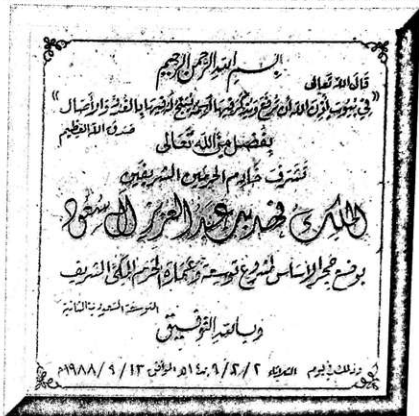 بسم الله الرحمن الرحيم
قال الله تعالى
في بيوت أذن الله أن ترفع ويذكر فيها اسمه يسبح له فيها بالغدو والآصال
صدق الله العظيم
بفضل من الله تعالى
تشرف خادم الحرمين الشريفين
الملك فهد بن عبد العزيز آل سعود
بوضع حجر الأساس لمشروع توسعة وعمارة الحرم المكي الشريف
التوسعة السعودية الثانية
وبالله التوفيق
وذلك في يوم الثلاثاء ٢/٢/١٤٠٩هـ الموافق ١٣/٩/١٩٨٨م